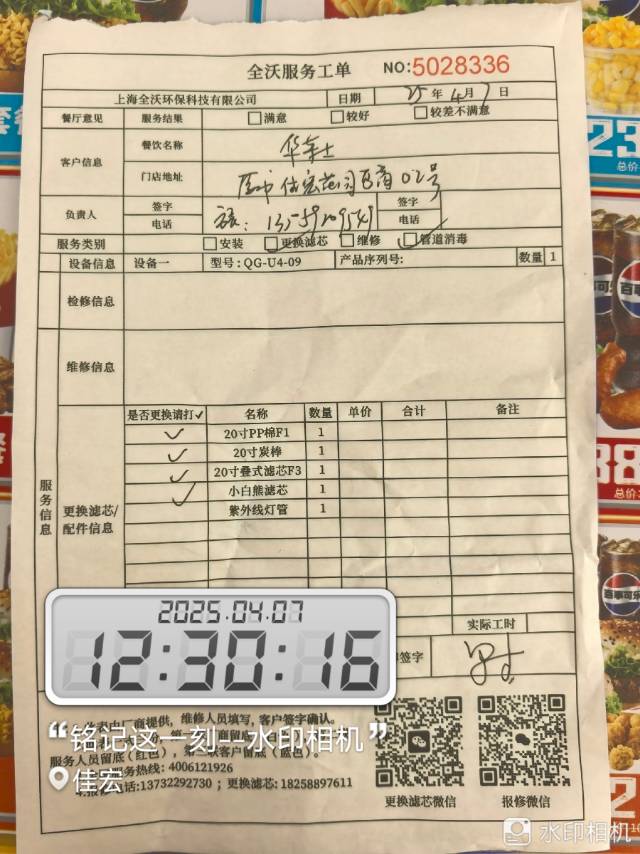 全沃服务工单 NO:5028336
上海全沃环保科技有限公司 日期 25年4月7日
餐厅意见 服务结果 满意 较好 较差不满意
客户信息 餐饮名称 华莱士
门店地址 佳宏花园 02号
负责人 签字 签字
电话 电话
服务类别 安装 更换滤芯 维修 管道消毒
设备信息 设备一 型号:QG-U4-09 产品序列号: 数量 1
检修信息
维修信息
服务信息
更换滤芯/配件信息
是否更换请打✓ 名称 数量 单价 合计 备注
✓ 20寸PP棉F1 1
✓ 20寸炭棒 1
✓ 20寸叠式滤芯F3 1
✓ 小白熊滤芯 1
紫外线灯管 1
实际工时
签字
2025.04.07
12:30:16
由厂商提供，维修人员填写，客户签字确认。
“铭记这一刻－水印相机”
服务人员留底（红色），客户留底（蓝色）。
佳宏
服务热线: 4006121926
电话:13732292730；更换滤芯: 18258897611
更换滤芯微信 报修微信
水印相机